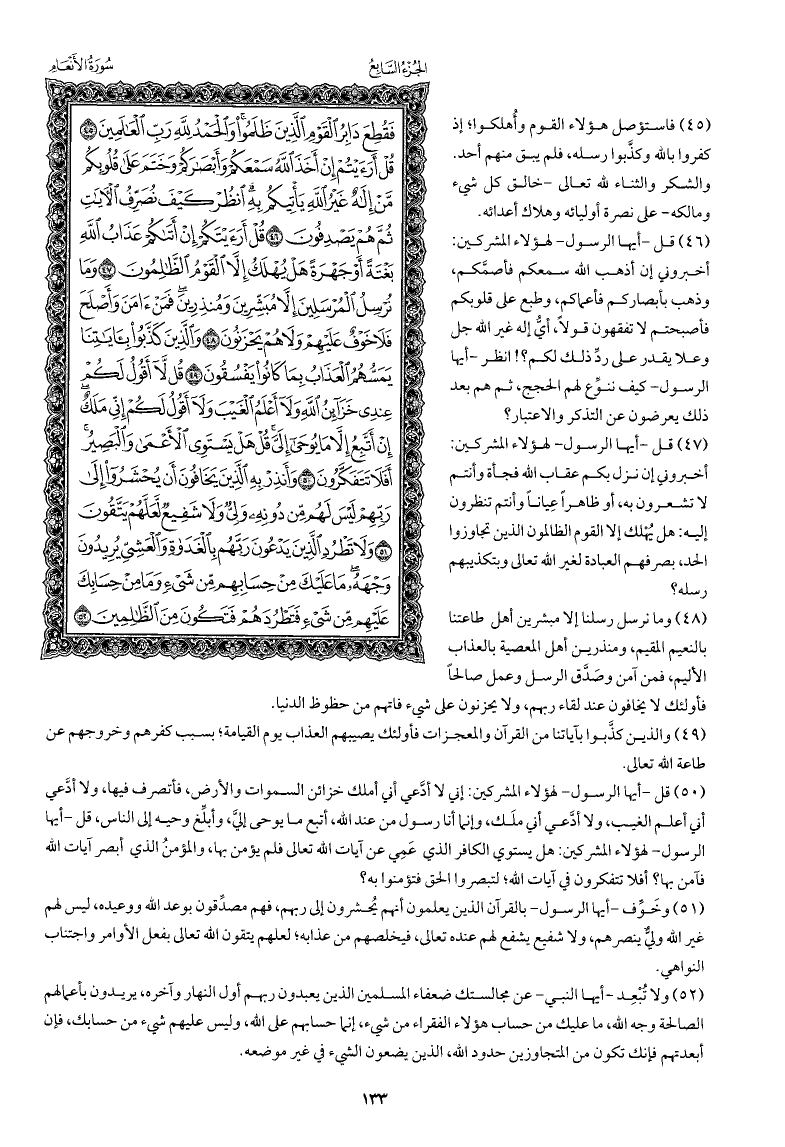 الجزء السابع
سورة الأنعام
فَقُطِعَ دَابِرُ الْقَوْمِ الَّذِينَ ظَلَمُوا۟ ۚ وَالْحَمْدُ لِلَّهِ رَبِّ الْعَالَمِينَ ٤٥
قُلْ أَرَءَيْتُمْ إِنْ أَخَذَ اللَّهُ سَمْعَكُمْ وَأَبْصَارَكُمْ وَخَتَمَ عَلَىٰ قُلُوبِكُم
مَّنْ إِلَٰهٌ غَيْرُ اللَّهِ يَأْتِيكُم بِهِ ۗ انظُرْ كَيْفَ نُصَرِّفُ الْآيَاتِ
ثُمَّ هُمْ يَصْدِفُونَ ٤٦ قُلْ أَرَءَيْتَكُمْ إِنْ أَتَاكُمْ عَذَابُ اللَّهِ
بَغْتَةً أَوْ جَهْرَةً هَلْ يُهْلَكُ إِلَّا الْقَوْمُ الظَّالِمُونَ ٤٧ وَمَا
نُرْسِلُ الْمُرْسَلِينَ إِلَّا مُبَشِّرِينَ وَمُنذِرِينَ ۖ فَمَنْ ءَامَنَ وَأَصْلَحَ
فَلَا خَوْفٌ عَلَيْهِمْ وَلَا هُمْ يَحْزَنُونَ ٤٨ وَالَّذِينَ كَذَّبُوا۟ بِـَٔايَاتِنَا
يَمَسُّهُمُ الْعَذَابُ بِمَا كَانُوا۟ يَفْسُقُونَ ٤٩ قُل لَّا أَقُولُ لَكُمْ
عِندِى خَزَائِنُ اللَّهِ وَلَا أَعْلَمُ الْغَيْبَ وَلَا أَقُولُ لَكُمْ إِنِّى مَلَكٌ ۖ
إِنْ أَتَّبِعُ إِلَّا مَا يُوحَىٰ إِلَىَّ ۚ قُلْ هَلْ يَسْتَوِى الْأَعْمَىٰ وَالْبَصِيرُ ۚ
أَفَلَا تَتَفَكَّرُونَ ٥٠ وَأَنذِرْ بِهِ الَّذِينَ يَخَافُونَ أَن يُحْشَرُوا۟ إِلَىٰ
رَبِّهِمْ ۙ لَيْسَ لَهُم مِّن دُونِهِ وَلِىٌّ وَلَا شَفِيعٌ لَّعَلَّهُمْ يَتَّقُونَ
٥١ وَلَا تَطْرُدِ الَّذِينَ يَدْعُونَ رَبَّهُم بِالْغَدَوٰةِ وَالْعَشِىِّ يُرِيدُونَ
وَجْهَهُ ۖ مَا عَلَيْكَ مِنْ حِسَابِهِم مِّن شَىْءٍ وَمَا مِنْ حِسَابِكَ
عَلَيْهِم مِّن شَىْءٍ فَتَطْرُدَهُمْ فَتَكُونَ مِنَ الظَّالِمِينَ ٥٢
(٤٥) فاستؤصل هـؤلاء القوم وأُهلكوا؛ إذ
كفروا بالله وكذَّبوا رسله، فلم يبق منهم أحد.
والشكر والثناء لله تعالى -خالق كل شيء
ومالكه- على نصرة أوليائه وهلاك أعدائه.
(٤٦) قل -أيها الرسول- لهؤلاء المشركين:
أخبروني إن أذهب الله سمعكم فأصمَّكم،
وذهب بأبصاركم فأعماكم، وطبع على قلوبكم
فأصبحتم لا تفقهون قولاً، أيُّ إله غير الله جل
وعلا يقدر على ردِّ ذلك لكم؟! انظر -أيها
الرسول- كيف ننوِّع لهم الحجج، ثم هم بعد
ذلك يعرضون عن التذكر والاعتبار؟
(٤٧) قل -أيها الرسول- لهؤلاء المشركين:
أخبروني إن نزل بكم عقاب الله فجأة وأنتم
لا تشعرون به، أو ظاهراً عِياناً وأنتم تنظرون
إليه: هل يُهْلك إلا القوم الظالمون الذين تجاوزوا
الحد، بصرفهم العبادة لغير الله تعالى وبتكذيبهم
رسله؟
(٤٨) وما نرسل رسلنا إلا مبشرين أهل طاعتنا
بالنعيم المقيم، ومنذرين أهل المعصية بالعذاب
الأليم، فمن آمن وصَدَّق الرسل وعمل صالحاً
فأولئك لا يخافون عند لقاء ربهم، ولا يحزنون على شيء فاتهم من حظوظ الدنيا.
(٤٩) والذين كذَّبوا بآياتنا من القرآن والمعجزات فأولئك يصيبهم العذاب يوم القيامة؛ بسبب كفرهم وخروجهم عن
طاعة الله تعالى.
(٥٠) قل -أيها الرسول- لهؤلاء المشركين: إني لا أدَّعي أني أملك خزائن السموات والأرض، فأتصرف فيها، ولا أدَّعي
أني أعلم الغيب، ولا أدَّعي أني ملَك، وإنما أنا رسول من عند الله، أتبع ما يوحى إليَّ، وأبلِّغ وحيه إلى الناس، قل -أيها
الرسول- لهؤلاء المشركين: هل يستوي الكافر الذي عَمِي عن آيات الله تعالى فلم يؤمن بها، والمؤمنُ الذي أبصر آيات الله
فآمن بها؟ أفلا تتفكرون في آيات الله؛ لتبصروا الحق فتؤمنوا به؟
(٥١) وخَوِّف -أيها الرسول- بالقرآن الذين يعلمون أنهم يُحشرون إلى ربهم، فهم مصدِّقون بوعد الله ووعيده، ليس لهم
غير الله وليٌّ ينصرهم، ولا شفيع يشفع لهم عنده تعالى، فيخلصهم من عذابه؛ لعلهم يتقون الله تعالى بفعل الأوامر واجتناب
النواهي.
(٥٢) ولا تُبْعِد -أيها النبي- عن مجالستك ضعفاء المسلمين الذين يعبدون ربهم أول النهار وآخره، يريدون بأعمالهم
الصالحة وجه الله، ما عليك من حساب هؤلاء الفقراء من شيء، إنما حسابهم على الله، وليس عليهم شيء من حسابك، فإن
أبعدتهم فإنك تكون من المتجاوزين حدود الله، الذين يضعون الشيء في غير موضعه.
١٣٣